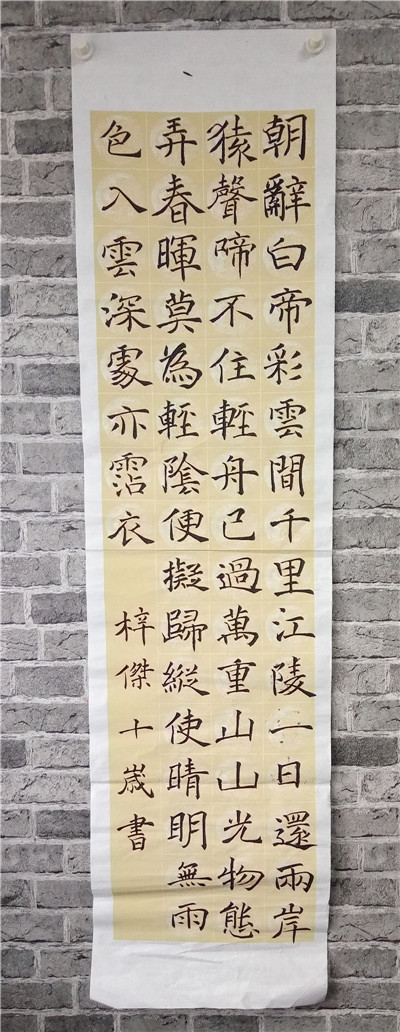 朝辭白帝彩雲間千里江陵一日還兩岸
猿聲啼不住輕舟已過萬重山山光物態
弄春暉莫為輕陰便擬歸縱使晴明無雨
色入雲深處亦霑衣
梓傑十歲書